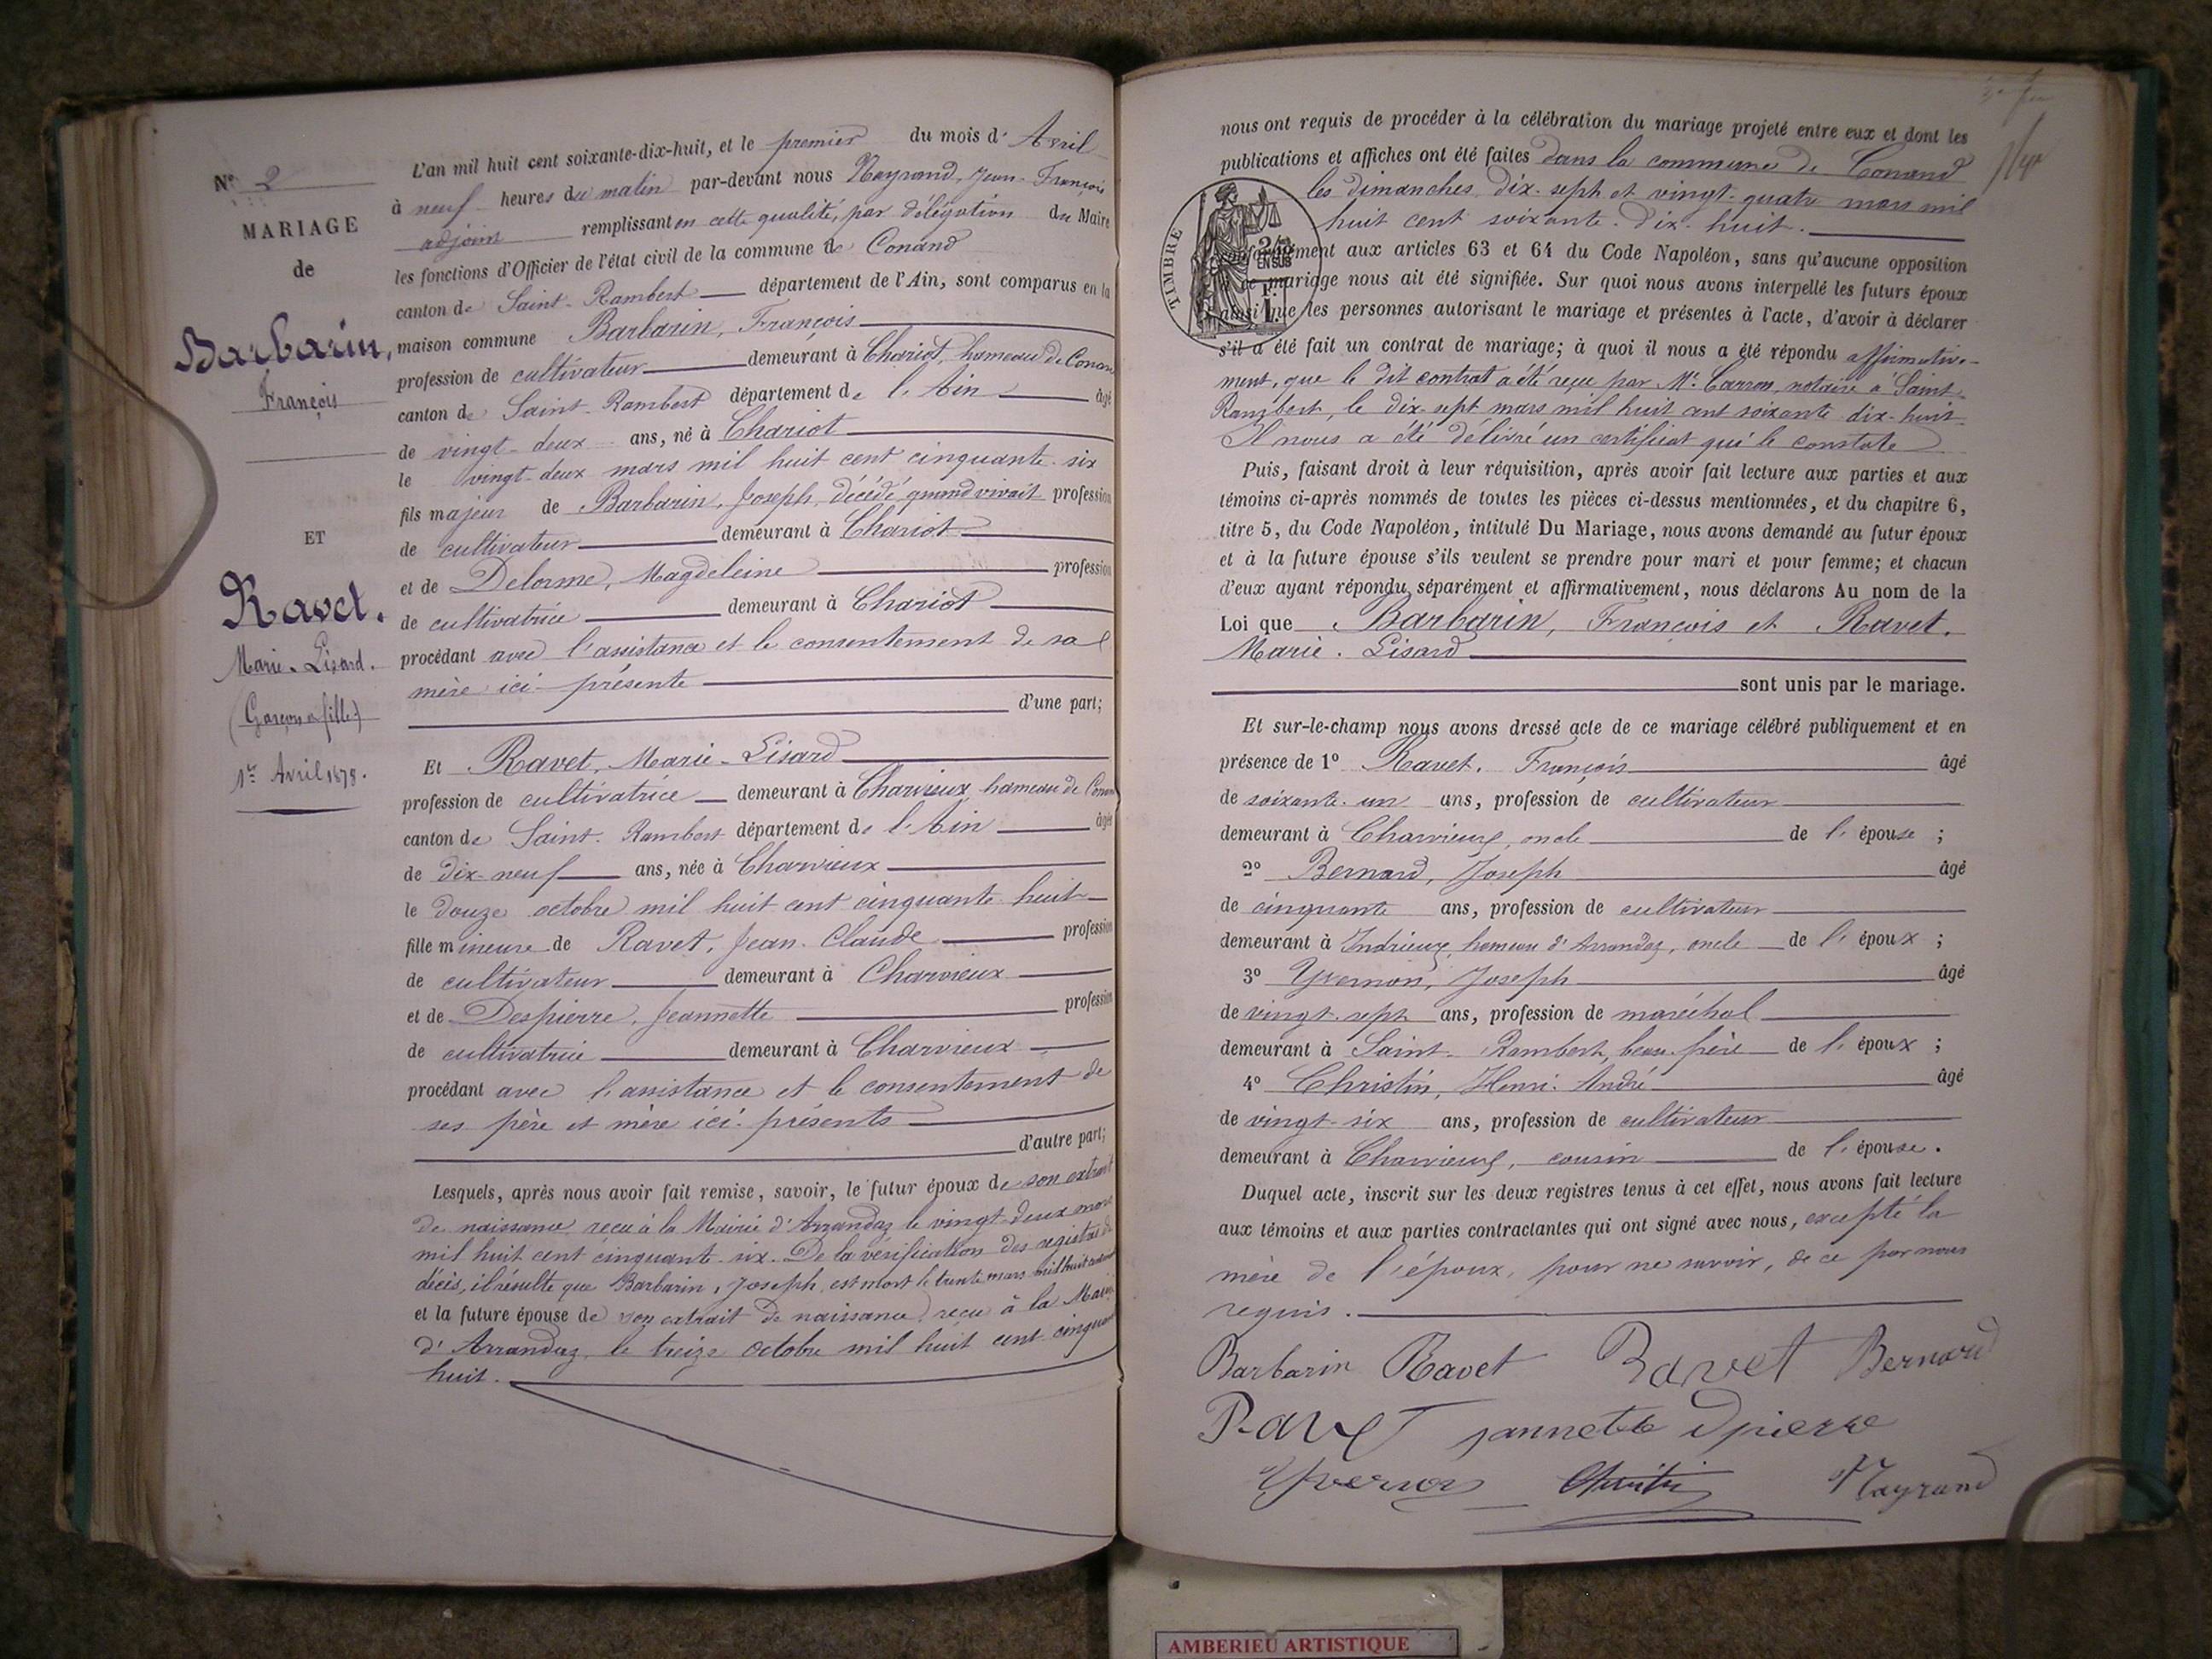 N° 2
MARIAGE
de
Barbarin,
François
ET
Ravet.
Marie-Lisard.
(Garçon et fille)
1er Avril 1878.
L'an mil huit cent soixante-dix-huit, et le premier du mois d'Avril
à neuf heures du matin par-devant nous Mayrand, Jean-François
adjoint remplissant en cette qualité, par délégation du Maire
les fonctions d'Officier de l'état civil de la commune de Conand
canton de Saint-Rambert département de l'Ain, sont comparus en la
maison commune Barbarin, François
profession de cultivateur demeurant à Chariot, hameau de Conand
canton de Saint-Rambert département de l'Ain âgé
de vingt-deux ans, né à Chariot
le vingt-deux mars mil huit cent cinquante-six
fils majeur de Barbarin, Joseph, décédé, quand vivait profession
de cultivateur demeurant à Chariot
et de Delorme, Magdeleine profession
de cultivatrice demeurant à Chariot
procédant avec l'assistance et le consentement de sa
mère ici-présente
d'une part;
Et Ravet, Marie-Lisard
profession de cultivatrice demeurant à Charvieux, hameau de
canton de Saint-Rambert département de l'Ain âgée
de dix-neuf ans, née à Charvieux
le douze octobre mil huit cent cinquante huit
fille mineure de Ravet, Jean-Claude profession
de cultivateur demeurant à Charvieux
et de Despierre, Jeannette profession
de cultivatrice demeurant à Charvieux
procédant avec l'assistance et le consentement de
ses père et mère ici-présents
d'autre part;
Lesquels, après nous avoir fait remise, savoir, le futur époux de son extrait
de naissance reçu à la Mairie d'Arrandaz le vingt-deux mars
mil huit cent cinquante-six. De la vérification des registres de
décès, il résulte que Barbarin, Joseph, est mort le trente mars mil huit cent
et la future épouse de son extrait de naissance reçu à la Mairie
d'Arrandaz, le treize octobre mil huit cent cinquante
huit.
nous ont requis de procéder à la célébration du mariage projeté entre eux et dont les
publications et affiches ont été faites dans la commune de Conand
les dimanches dix-sept et vingt-quatre mars mil
huit cent soixante-dix-huit.
TIMBRE
EN SUS
conformément aux articles 63 et 64 du Code Napoléon, sans qu'aucune opposition
à ce mariage nous ait été signifiée. Sur quoi nous avons interpellé les futurs époux
ainsi que les personnes autorisant le mariage et présentes à l'acte, d'avoir à déclarer
s'il a été fait un contrat de mariage; à quoi il nous a été répondu affirmative-
ment, que le dit contrat a été reçu par Me. Carron, notaire à Saint-
Rambert, le dix-sept mars mil huit cent soixante dix-huit
Il nous a été délivré un certificat qui le constate
Puis, faisant droit à leur réquisition, après avoir fait lecture aux parties et aux
témoins ci-après nommés de toutes les pièces ci-dessus mentionnées, et du chapitre 6,
titre 5, du Code Napoléon, intitulé Du Mariage, nous avons demandé au futur époux
et à la future épouse s'ils veulent se prendre pour mari et pour femme; et chacun
d'eux ayant répondu séparément et affirmativement, nous déclarons Au nom de la
Loi que Barbarin, François et Ravet,
Marie-Lisard
sont unis par le mariage.
Et sur-le-champ nous avons dressé acte de ce mariage célébré publiquement et en
présence de 1° Ravet, François âgé
de soixante-un ans, profession de cultivateur
demeurant à Charvieux, oncle de l'épouse;
2° Bernard, Joseph âgé
de cinquante ans, profession de cultivateur
demeurant à Indrieux, hameau d'Arrandaz, oncle de l'époux;
3° Yvernon, Joseph âgé
de vingt-sept ans, profession de maréchal
demeurant à Saint-Rambert, beau-frère de l'époux;
4° Christin, Henri-André âgé
de vingt-six ans, profession de cultivateur
demeurant à Charvieux, cousin de l'épouse.
Duquel acte, inscrit sur les deux registres tenus à cet effet, nous avons fait lecture
aux témoins et aux parties contractantes qui ont signé avec nous, excepté la
mère de l'époux, pour ne savoir, de ce par nous
requis.
Barbarin Ravet Ravet Bernard
Ravet jannette dpierre
Yvernon Christin Mayrand
AMBERIEU ARTISTIQUE